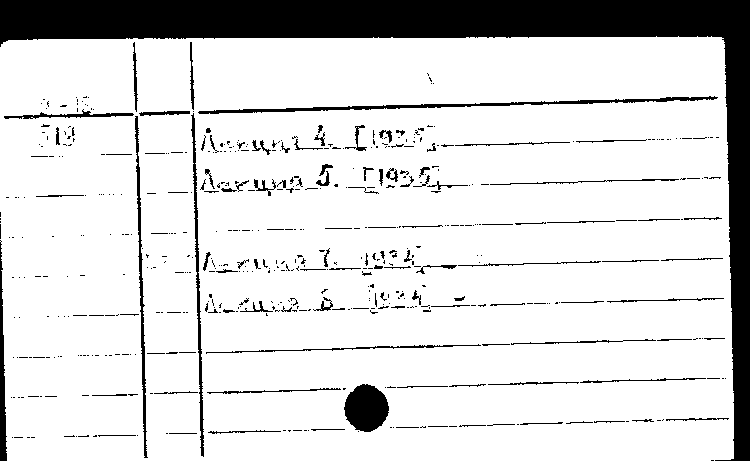 519
Лекция 4. [1935].
Лекция 5. [1935].
Лекция 7. [1934]. -
Лекция [1934] -